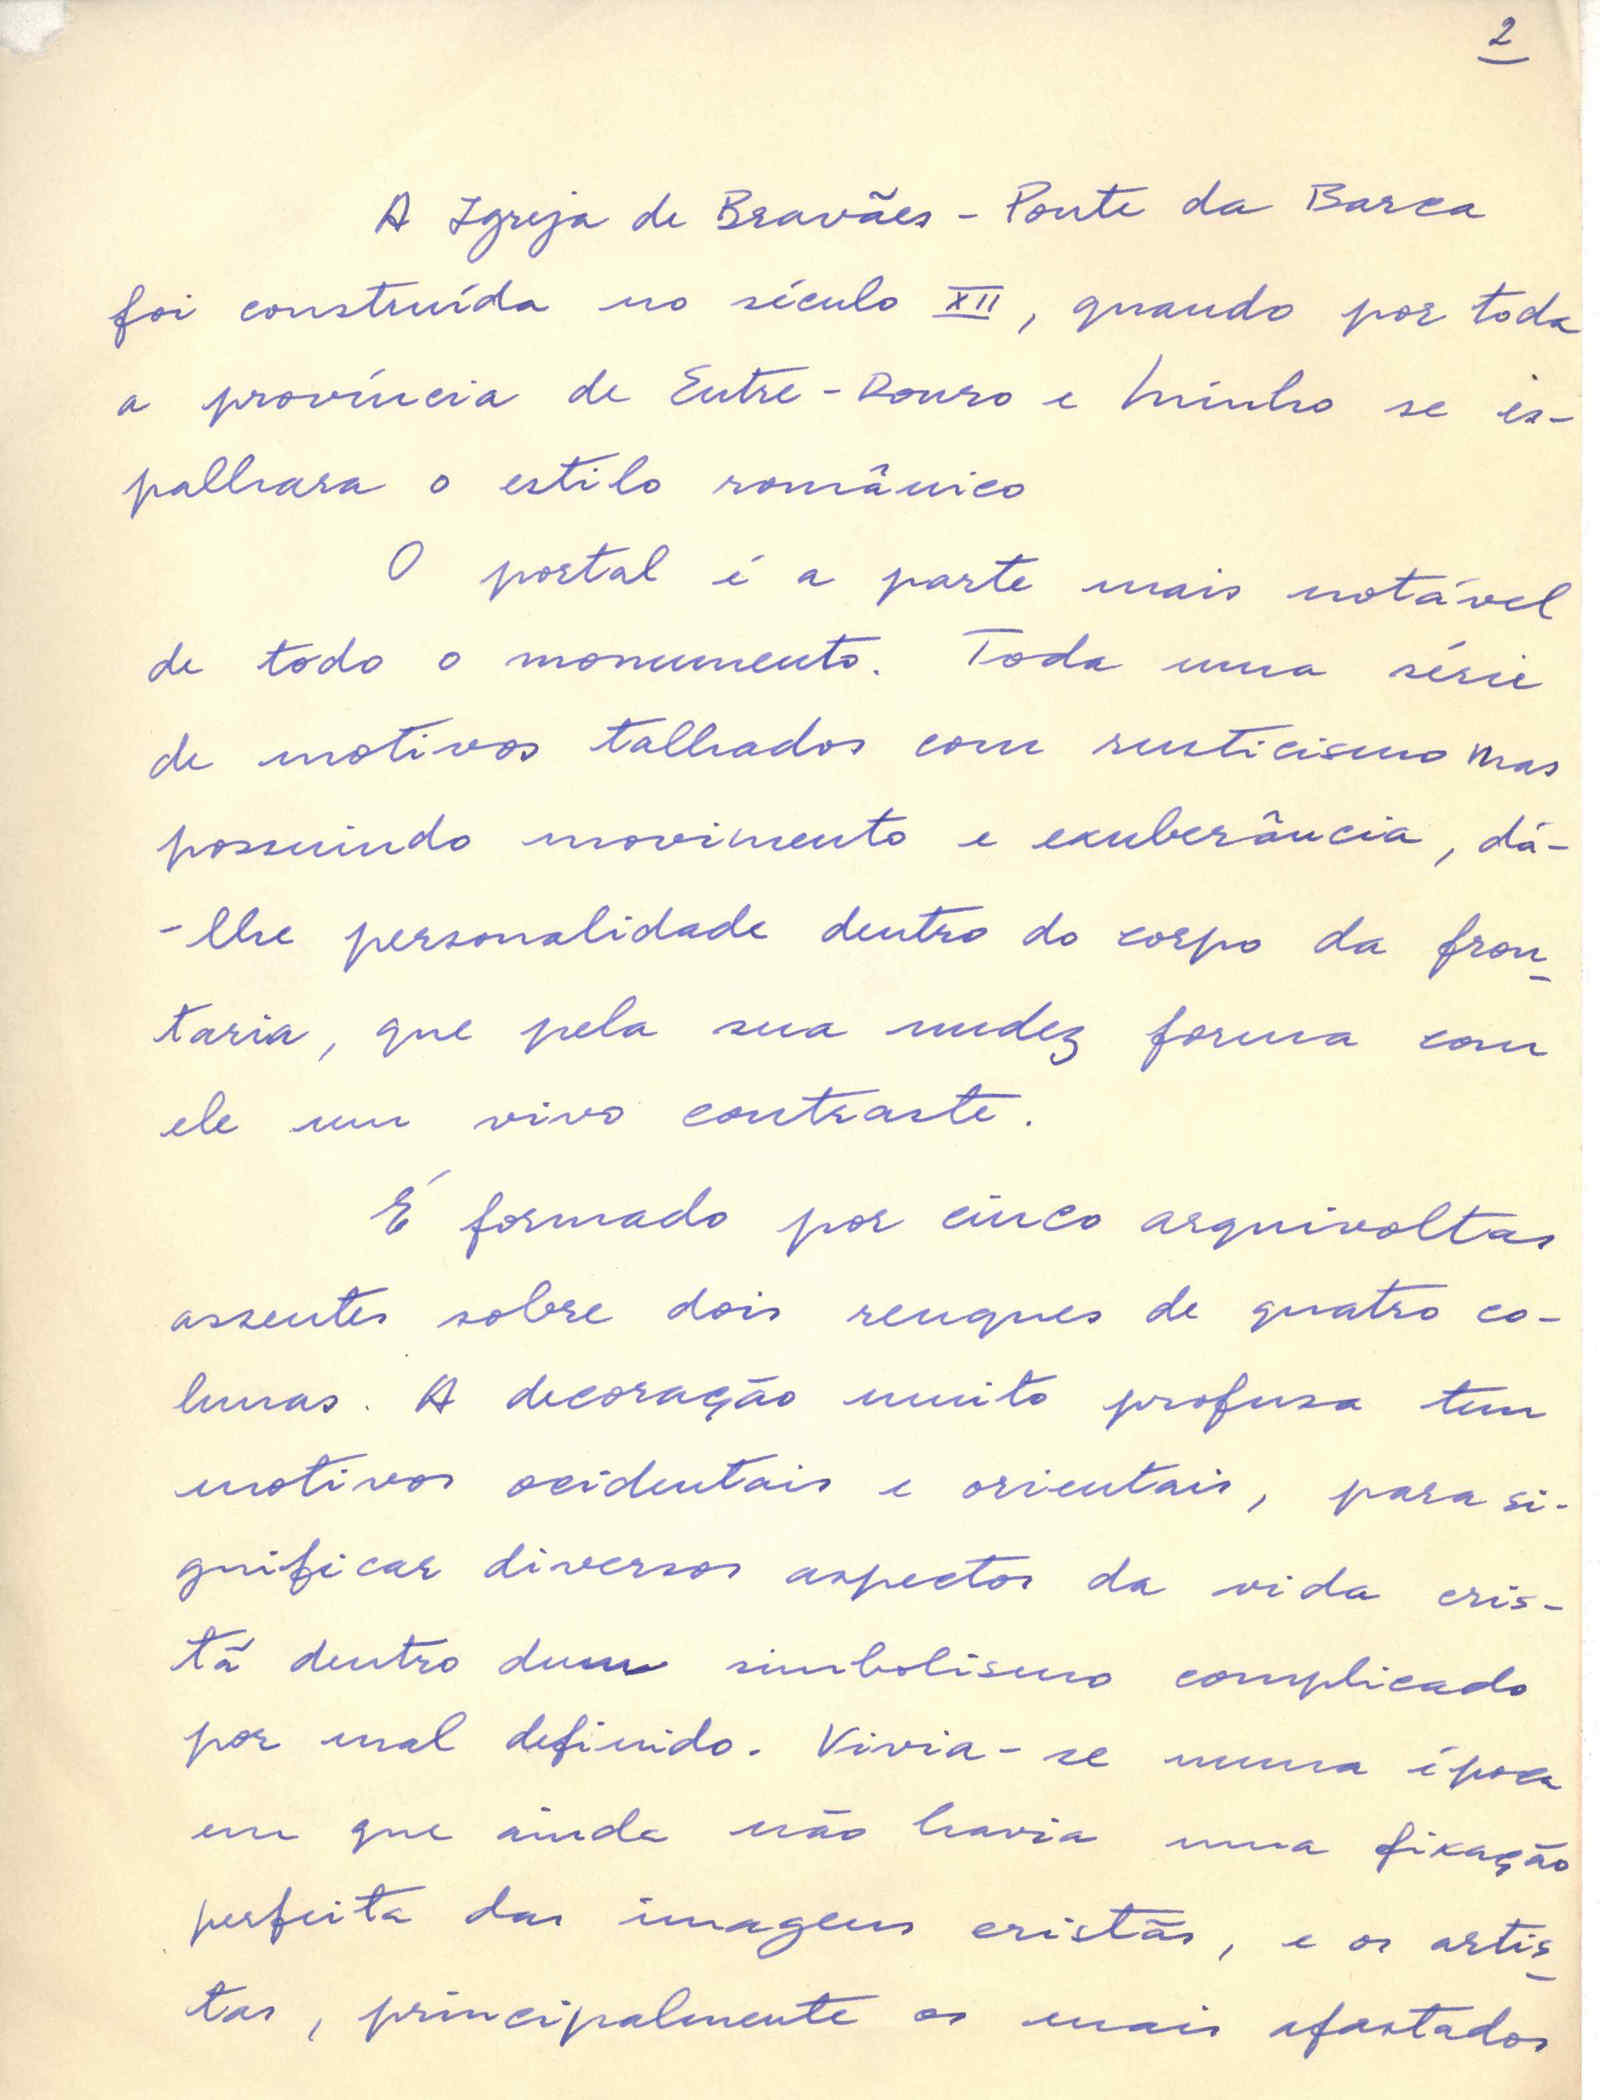 2
A Igreja de Bravães - Ponte da Barca
foi construída no século XII, quando por toda
a província de Entre-Douro e Minho se es-
palhara o estilo românico
O portal é a parte mais notável
de todo o monumento. Toda uma série
de motivos talhados com rusticismo mas
possuindo movimento e exuberância, dá-
-lhe personalidade dentro do corpo da fron-
taria, que pela sua nudez forma com
ele um vivo contraste.
É formado por cinco arquivoltas
assentes sobre dois renques de quatro co-
lunas. A decoração muito profusa tem
motivos ocidentais e orientais, para si-
gnificar diversos aspectos da vida cris-
tã dentro dum simbolismo complicado
por mal definido. Vivia-se numa época
em que ainda não havia uma fixação
perfeita das imagens cristãs, e os artis-
tas, principalmente os mais afastados